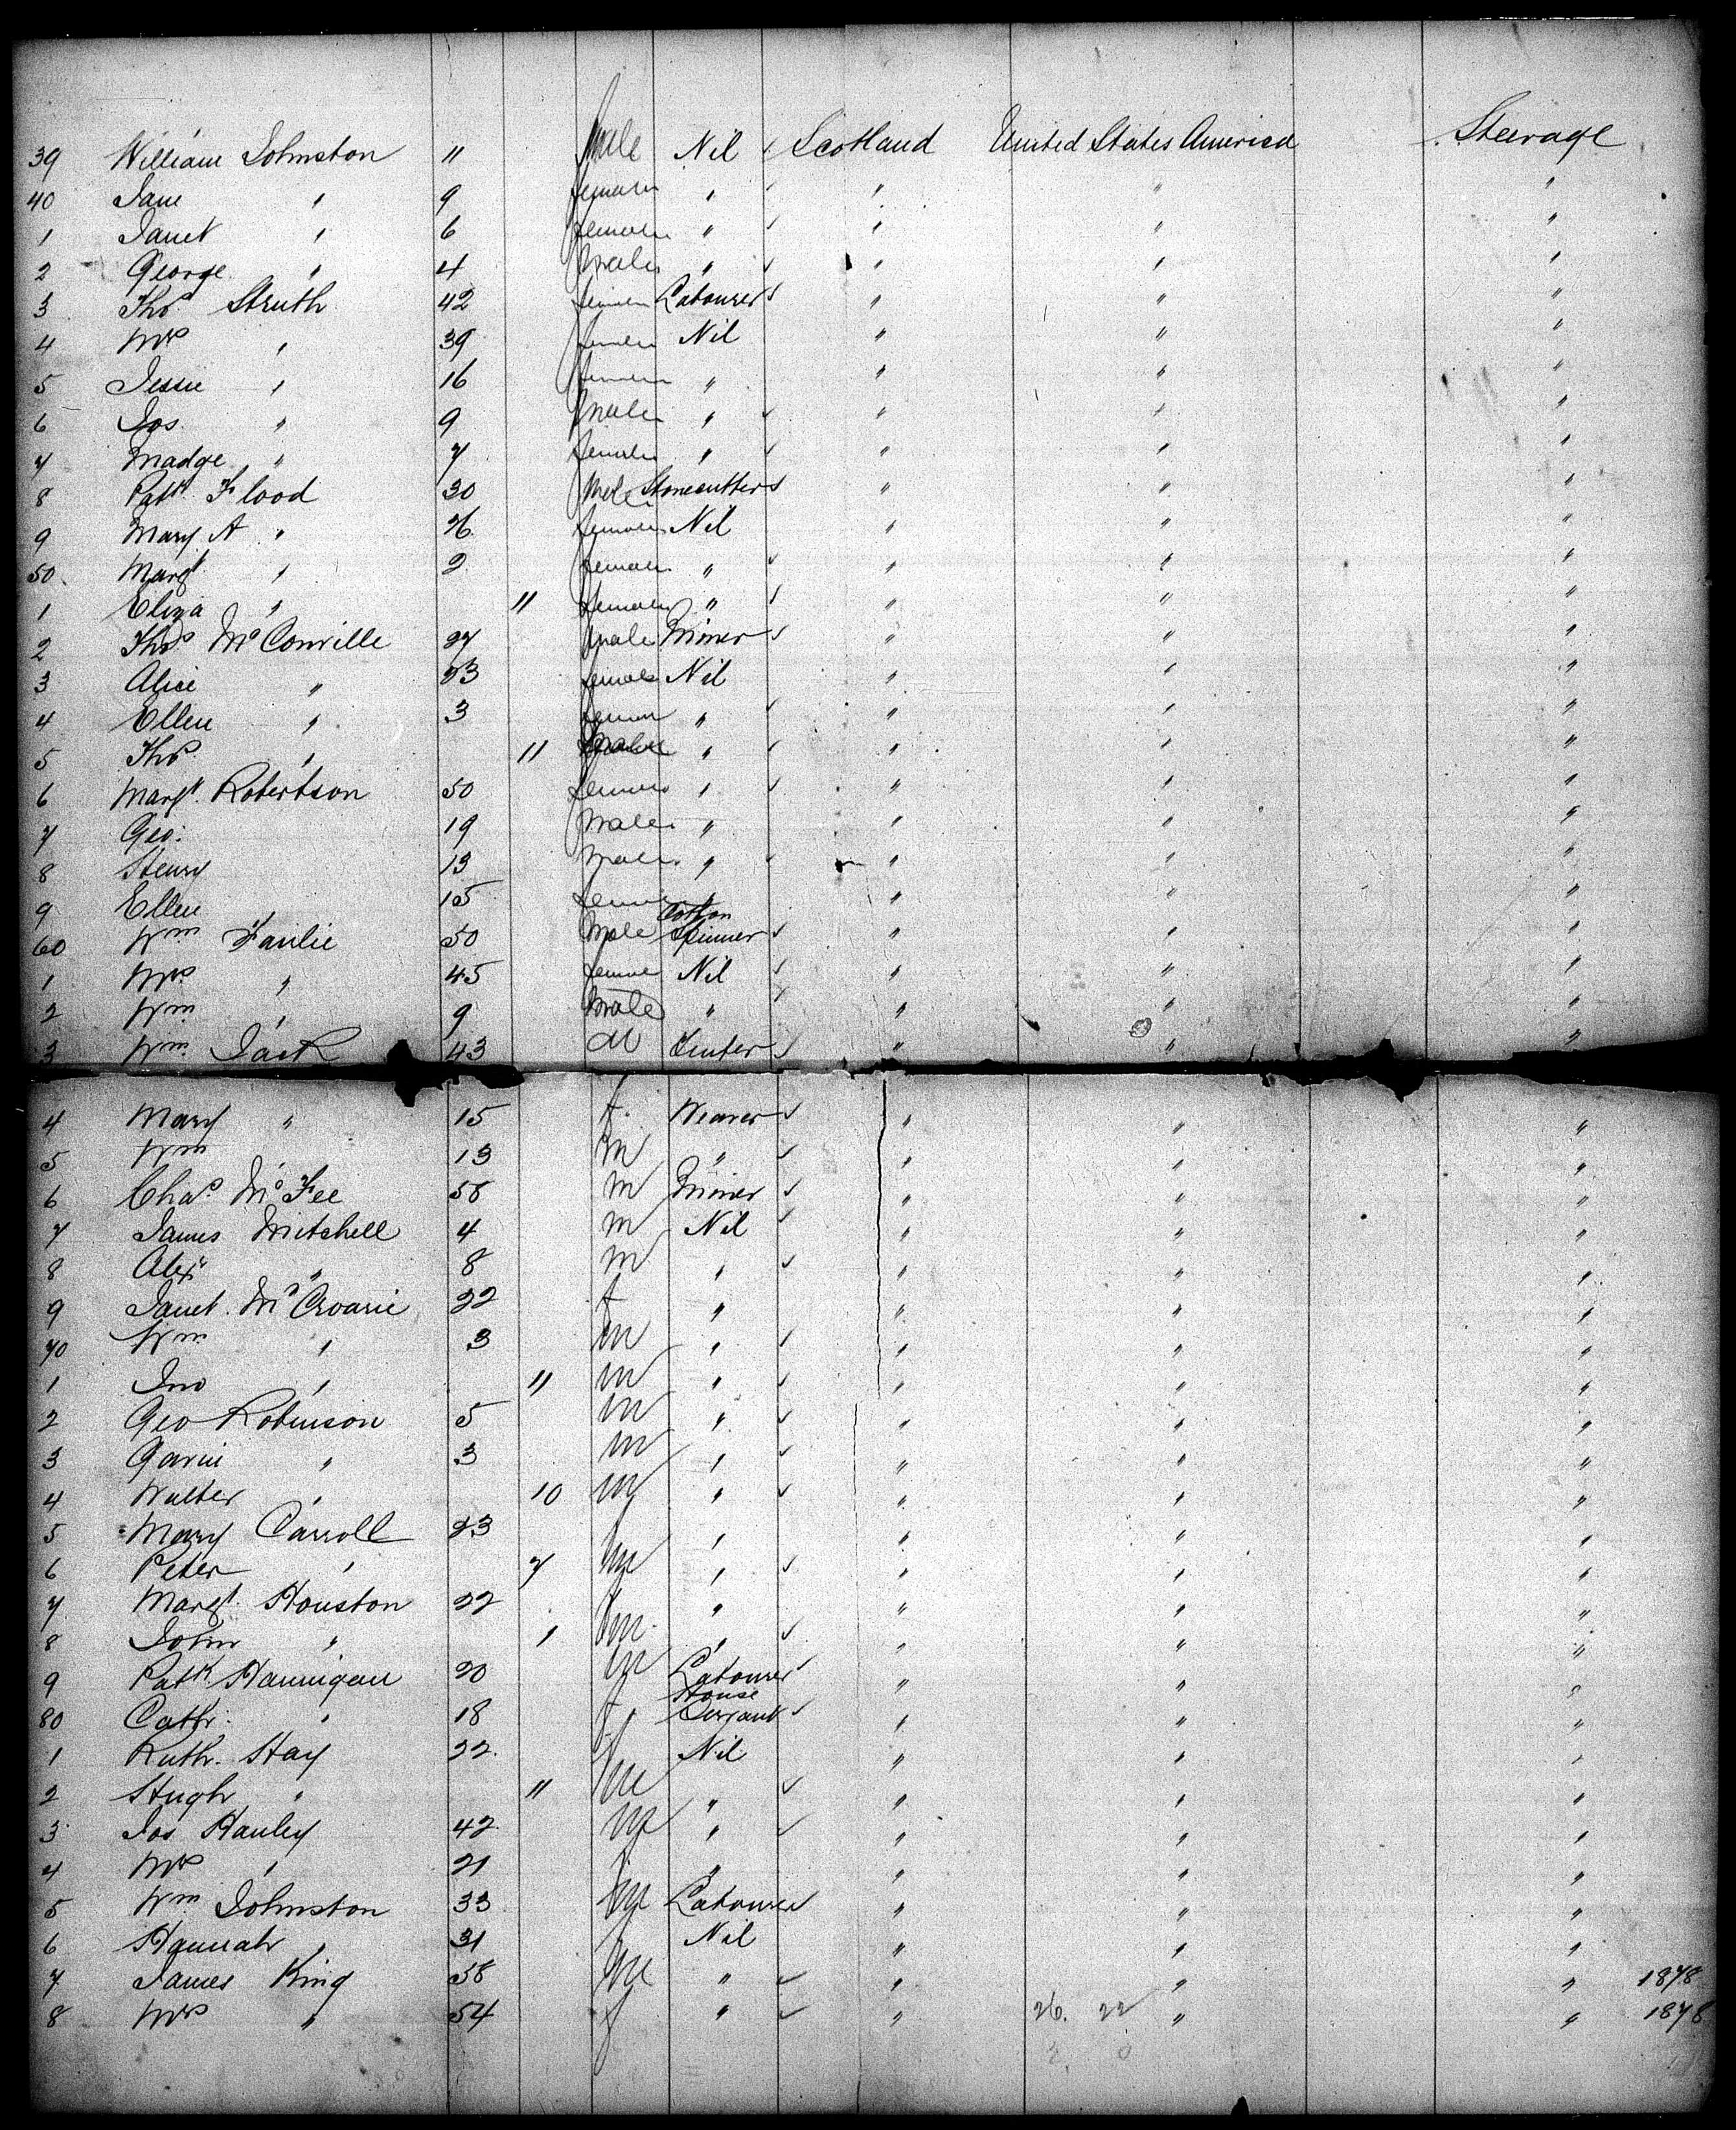 39 William Johnston 11 male Nil Scotland United States America Steerage
40 Jane " 9 female " " " "
1 Janet " 6 female " " " "
2 George " 4 male " " " "
3 Thos Struth 42 Labourer " " "
4 Mrs " 39 female Nil " " "
5 Jessie " 16 female " " " "
6 Jos " 9 male " " " "
7 Madge " 7 female " " " "
8 Patk Flood 30 Male Stonecutter " " "
9 Mary A " 26 female Nil " " "
50 Margt " 2 female " " " "
1 Eliza " 11 female " " " "
2 Thos McConville 27 male Miner " " "
3 Alice " 23 female Nil " " "
4 Ellen " 3 " " " "
5 Thos " 11 male " " " "
6 Margt Robertson 50 female " " " "
7 Geo: 19 male " " " "
8 Henry 13 male " " " "
9 Ellen 15 " " " "
60 Wm Fairlie 50 Male Cotton Spinner " " "
1 Mrs " 45 Nil " " "
2 Wm " 9 Male " " " "
3 Wm Jack 43 M Tenter " " "
4 Mary " 15 f. Weaver " " "
5 Wm " 13 M " " " "
6 Chas McFee 58 M Miner " " "
7 James Mitchell 4 M Nil " " "
8 Alexr " 8 M " " " "
9 Janet McCroarie 22 f " " " "
70 Wm " 3 M " " " "
1 Jno " 11 M " " " "
2 Geo Robinson 5 M " " " "
3 Gavin " 3 M " " " "
4 Walter " 10 M " " " "
5 Mary Carroll 23 " " " "
6 Peter " 7 M " " " "
7 Margt Houston 22 " " " "
8 John " 1 M " " " "
9 Patk Hannigan 20 M Labourer " " "
80 Cathr. " 18 f House Servant " " "
1 Ruth. Hay 22 f Nil " " "
2 Hugh " 11 M " " " "
3 Jos Hanley 42 M " " " "
4 Mrs " 21 f " " " "
5 Wm Johnston 33 M Labourer " " "
6 Hannah " 31 f Nil " " "
7 James King 58 M " " " " 1878
8 Mrs " 54 f " " 26. 22 " " 1878